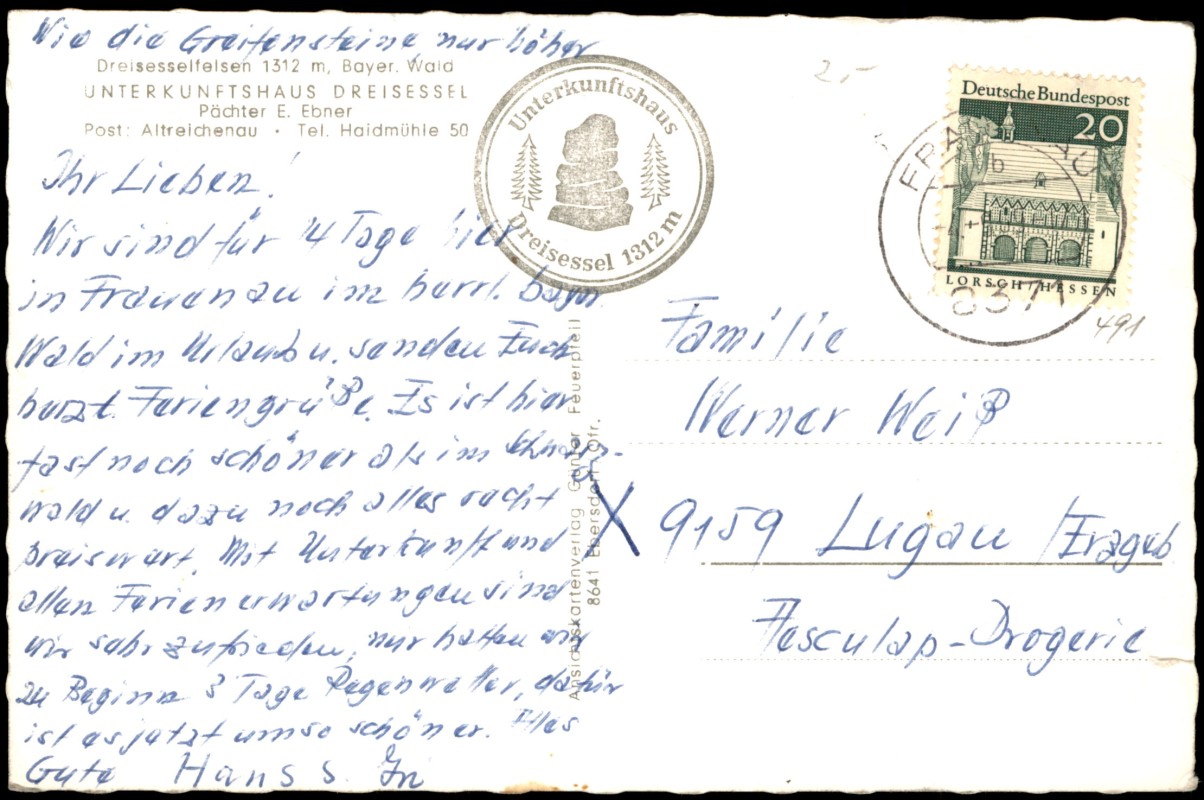 Wie die Greifensteine, nur höher
Dreisesselfelsen 1312 m, Bayer. Wald
UNTERKUNFTSHAUS DREISESSEL
Pächter E. Ebner
Post: Altreichenau · Tel. Haidmühle 50
Ihr Lieben!
Wir sind für 14 Tage hier
in Frauenau im herrl. bayer.
Wald im Urlaub u. senden Euch
herzl. Feriengrüße. Es ist hier
fast noch schöner als im Schwarz-
wald u. dazu noch alles recht
preiswert. Mit Unterkunft und
allen Ferienerwartungen sind
wir sehr zufrieden, nur hatten wir
zu Beginn 3 Tage Regenwetter, dafür
ist es jetzt umso schöner. Alles
Gute Hans
Unterkunftshaus
Dreisessel 1312 m
Ansichtskartenverlag Günter Feuerpfeil
8641 Ebersdorf Ofr.
2,-
Deutsche Bundespost
20
LORSCH / HESSEN
b
8371
491
Familie
Werner Weiß
X 9159 Lugau /Erzgeb
Aesculap-Drogerie